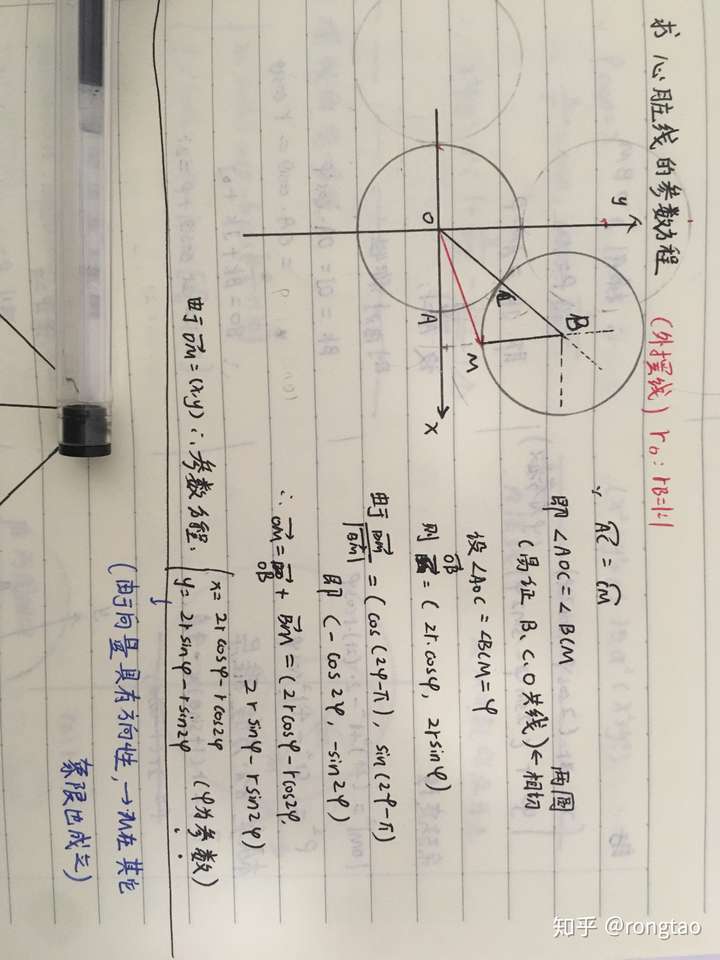 求心脏线的参数方程 (外摆线) r₀:r_B=1:1
y
O
C
B
A
M
x
∵ AC⌒ = CM⌒
即 ∠AOC=∠BCM 两圆
(易证 B、C、O共线)←相切
设 ∠AOC=∠BCM=φ
则 OB→ = (2r.cosφ, 2rsinφ)
由于 BM→/|BM→| = (cos(2φ-π), sin(2φ-π))
即 (-cos2φ, -sin2φ)
∴ OM→ = OB→ + BM→ = (2rcosφ-rcos2φ,
2rsinφ-rsin2φ)
由于OM→=(x,y) ∴参数方程: { x=2rcosφ-rcos2φ
y=2rsinφ-rsin2φ (φ为参数)
(由于向量具有方向性,→M在其它
象限也成立)
知乎 @rongtao